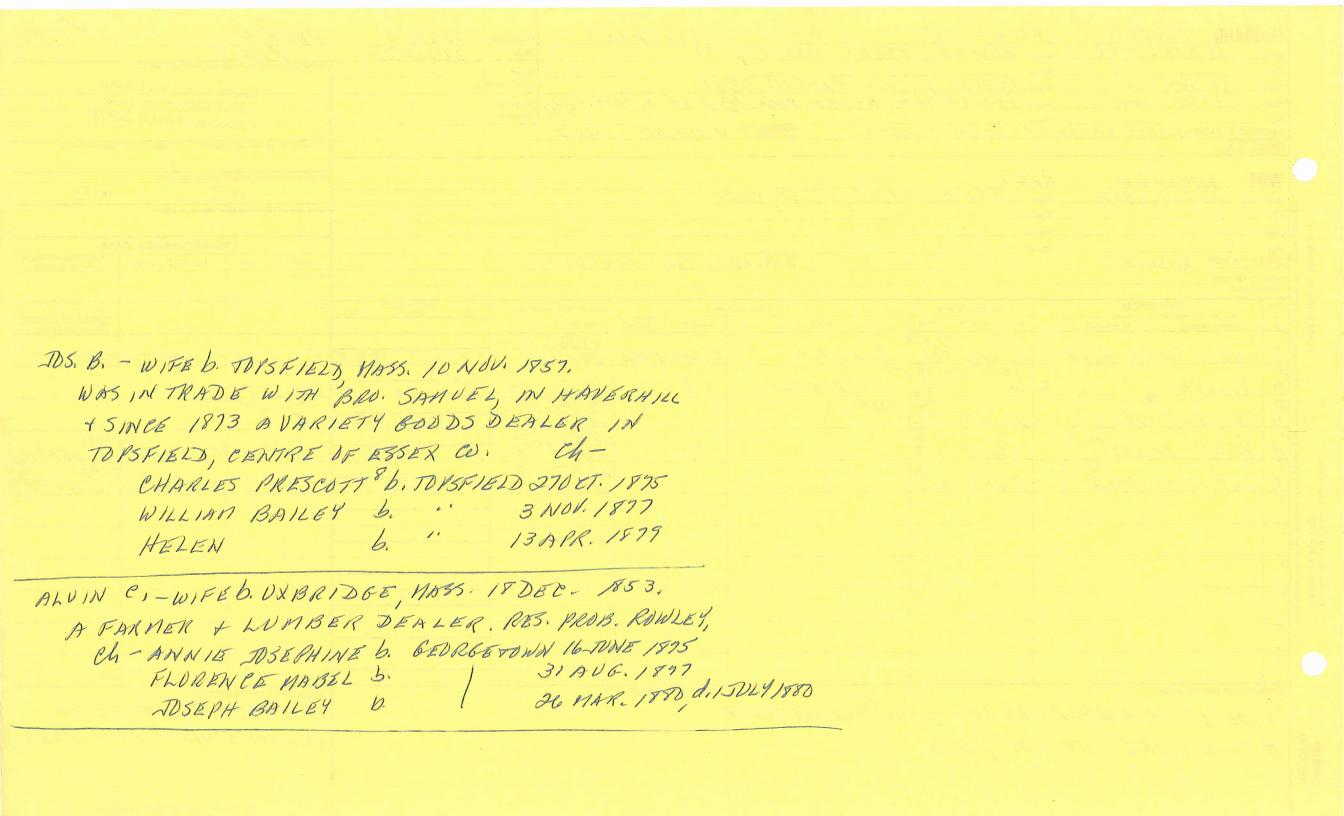 JOS. B. - WIFE b. TOPSFIELD, MASS. 10 NOV. 1857.
WAS IN TRADE WITH BRO. SAMUEL, IN HAVERHILL
+ SINCE 1873 A VARIETY GOODS DEALER IN
TOPSFIELD, CENTRE OF ESSEX CO. Ch-
CHARLES PRESCOTT 8 b. TOPSFIELD 27 OCT. 1875
WILLIAM BAILEY b. " 3 NOV. 1877
HELEN b. " 13 APR. 1879
ALVIN C. - WIFE b. UXBRIDGE, MASS. 18 DEC. 1853.
A FARMER + LUMBER DEALER. RES. PROB. ROWLEY,
Ch - ANNIE JOSEPHINE b. GEORGETOWN 16 JUNE 1875
FLORENCE MABEL b. | 31 AUG. 1877
JOSEPH BAILEY b. 26 MAR. 1880, d. 1 JULY 1880